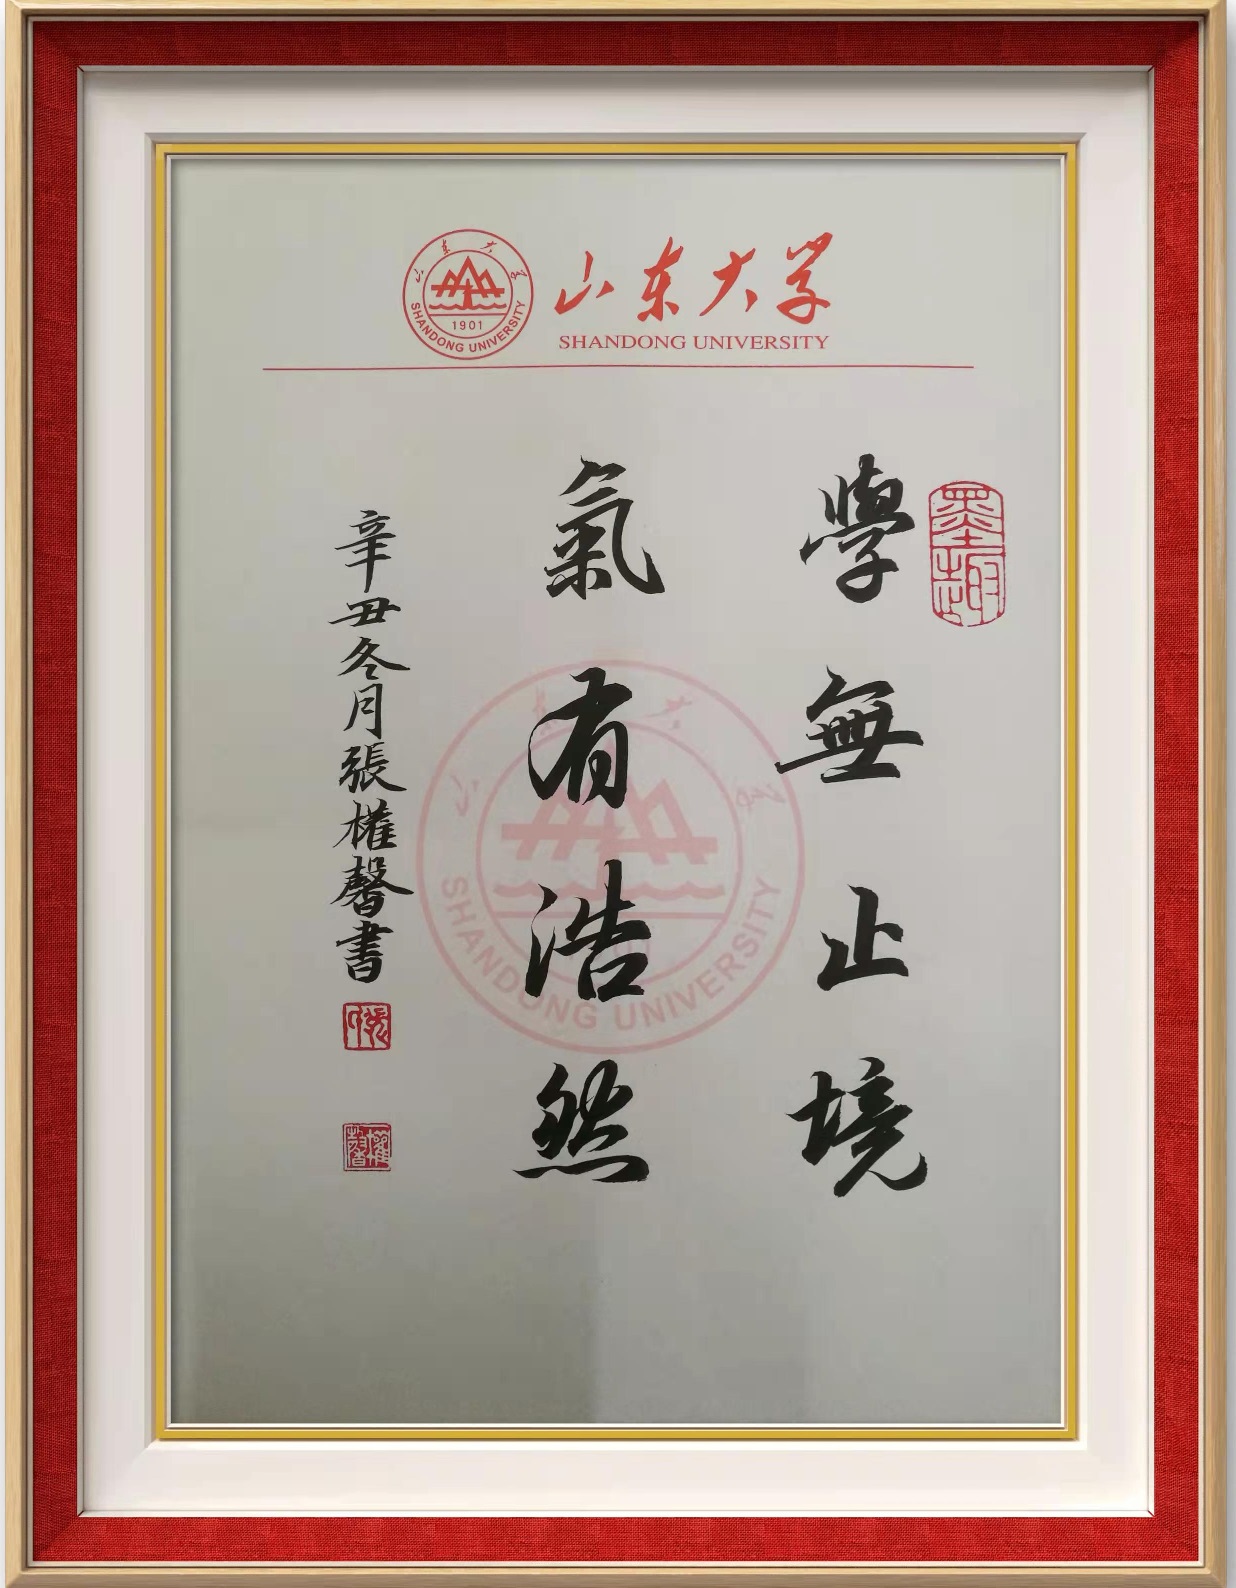 山东大学
SHANDONG UNIVERSITY
1901
山东大学
SHANDONG UNIVERSITY
學無止境
氣有浩然
辛丑冬月張權馨書
墨趣
權馨
山东大学
SHANDONG UNIVERSITY